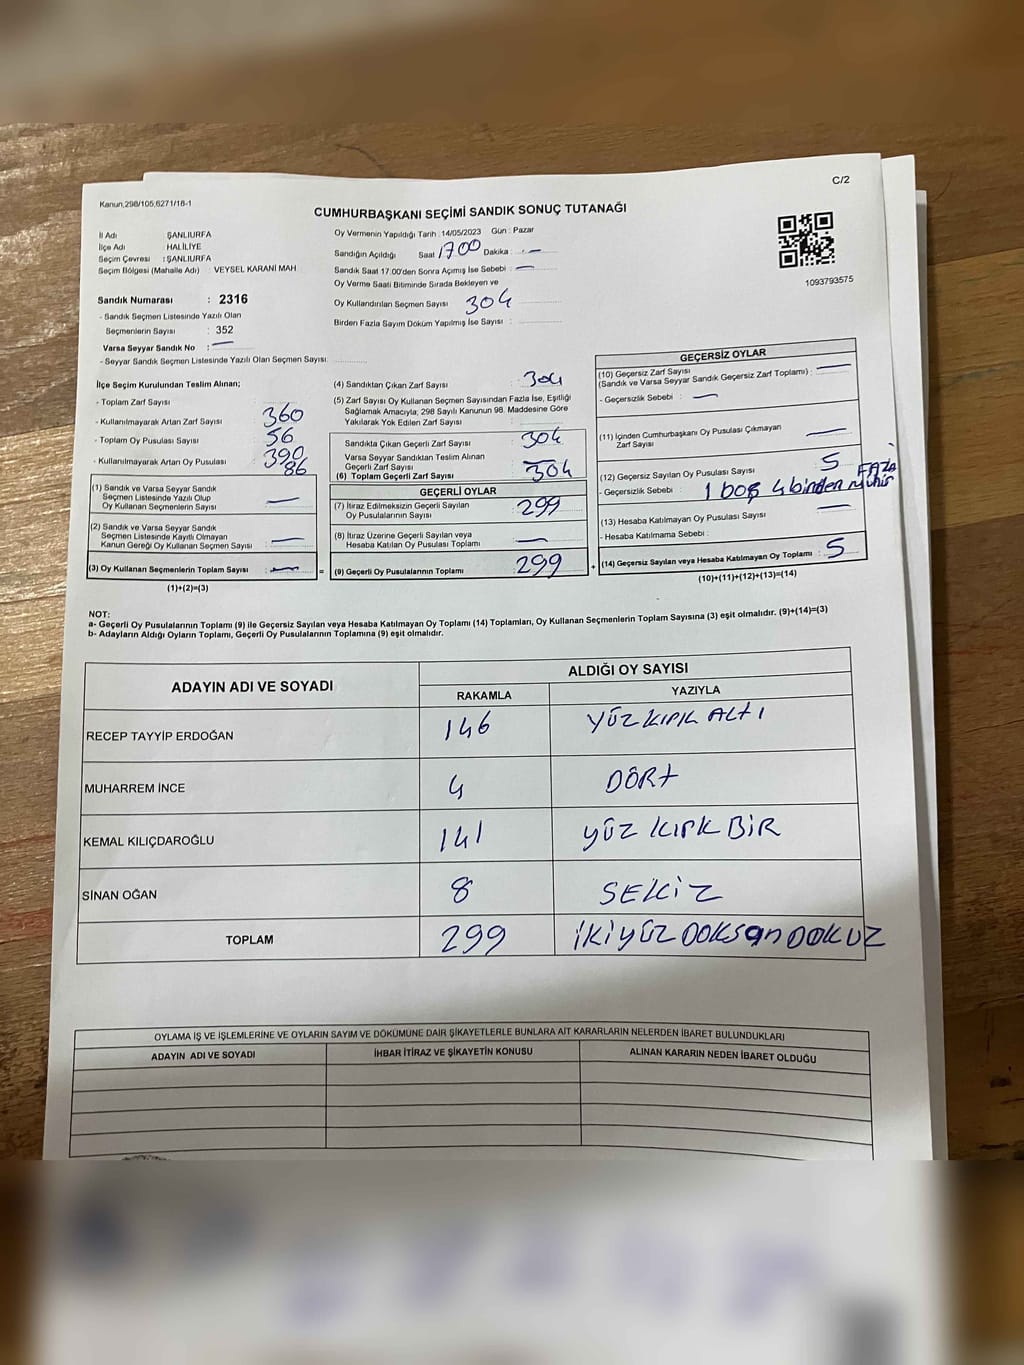 C/2
Kanun,298/105,6271/18-1
CUMHURBAŞKANI SEÇİMİ SANDIK SONUÇ TUTANAĞI
İl Adı : ŞANLIURFA
İlçe Adı : HALİLİYE
Seçim Çevresi : ŞANLIURFA
Seçim Bölgesi (Mahalle Adı) VEYSEL KARANİ MAH
Sandık Numarası : 2316
- Sandık Seçmen Listesinde Yazılı Olan
Seçmenlerin Sayısı : 352
Varsa Seyyar Sandık No : —
- Seyyar Sandık Seçmen Listesinde Yazılı Olan Seçmen Sayısı:
Oy Vermenin Yapıldığı Tarih : 14/05/2023 Gün : Pazar
Sandığın Açıldığı Saat 1700 Dakika : —
Sandık Saat 17.00'den Sonra Açımış İse Sebebi : —
Oy Verme Saati Bitiminde Sırada Bekleyen ve
Oy Kullandırılan Seçmen Sayısı 304
Birden Fazla Sayım Döküm Yapılmış İse Sayısı :
1093793575
İlçe Seçim Kurulundan Teslim Alınan;
- Toplam Zarf Sayısı : 360
- Kullanılmayarak Artan Zarf Sayısı : 56
- Toplam Oy Pusulası Sayısı : 390
- Kullanılmayarak Artan Oy Pusulası : 86
(1) Sandık ve Varsa Seyyar Sandık
Seçmen Listesinde Yazılı Olup
Oy Kullanan Seçmenlerin Sayısı : —
(2) Sandık ve Varsa Seyyar Sandık
Seçmen Listesinde Kayıtlı Olmayan
Kanun Gereği Oy Kullanan Seçmen Sayısı : —
(3) Oy Kullanan Seçmenlerin Toplam Sayısı : —
(1)+(2)=(3)
(4) Sandıktan Çıkan Zarf Sayısı : 304
(5) Zarf Sayısı Oy Kullanan Seçmen Sayısından Fazla İse, Eşitliği
Sağlamak Amacıyla; 298 Sayılı Kanunun 98. Maddesine Göre
Yakılarak Yok Edilen Zarf Sayısı :
Sandıkta Çıkan Geçerli Zarf Sayısı : 304
Varsa Seyyar Sandıktan Teslim Alınan
Geçerli Zarf Sayısı : —
(6) Toplam Geçerli Zarf Sayısı : 304
GEÇERLİ OYLAR
(7) İtiraz Edilmeksizin Geçerli Sayılan
Oy Pusulalarının Sayısı : 299
(8) İtiraz Üzerine Geçerli Sayılan veya
Hesaba Katılan Oy Pusulası Toplamı : —
= (9) Geçerli Oy Pusulalarının Toplamı : 299
GEÇERSİZ OYLAR
(10) Geçersiz Zarf Sayısı
(Sandık ve Varsa Seyyar Sandık Geçersiz Zarf Toplamı) : —
- Geçersizlik Sebebi : —
(11) İçinden Cumhurbaşkanı Oy Pusulası Çıkmayan
Zarf Sayısı : —
(12) Geçersiz Sayılan Oy Pusulası Sayısı : 5
- Geçersizlik Sebebi : 1 boş 4 birden FAZla mühür
(13) Hesaba Katılmayan Oy Pusulası Sayısı : —
- Hesaba Katılmama Sebebi :
+ (14) Geçersiz Sayılan veya Hesaba Katılmayan Oy Toplamı : 5
(10)+(11)+(12)+(13)=(14)
NOT:
a- Geçerli Oy Pusulalarının Toplamı (9) ile Geçersiz Sayılan veya Hesaba Katılmayan Oy Toplamı (14) Toplamları, Oy Kullanan Seçmenlerin Toplam Sayısına (3) eşit olmalıdır. (9)+(14)=(3)
b- Adayların Aldığı Oyların Toplamı, Geçerli Oy Pusulalarının Toplamına (9) eşit olmalıdır.
ADAYIN ADI VE SOYADI
ALDIĞI OY SAYISI
RAKAMLA YAZIYLA
RECEP TAYYİP ERDOĞAN 146 YÜZ KIRK ALTI
MUHARREM İNCE 4 DÖRT
KEMAL KILIÇDAROĞLU 141 YÜZ KIRK BİR
SİNAN OĞAN 8 SEKİZ
TOPLAM 299 İKİYÜZ DOKSan DOKUZ
OYLAMA İŞ VE İŞLEMLERİNE VE OYLARIN SAYIM VE DÖKÜMÜNE DAİR ŞİKAYETLERLE BUNLARA AİT KARARLARIN NELERDEN İBARET BULUNDUKLARI
ADAYIN ADI VE SOYADI İHBAR İTİRAZ VE ŞİKAYETİN KONUSU ALINAN KARARIN NEDEN İBARET OLDUĞU